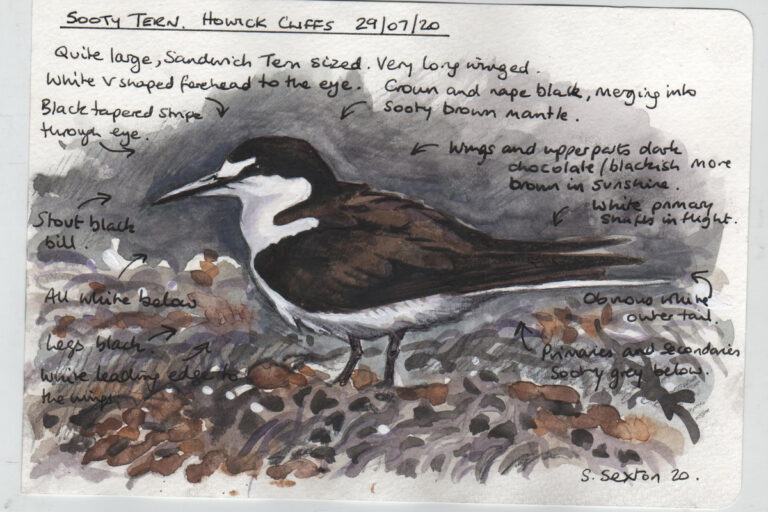 SOOTY TERN. HOWICK CLIFFS 29/07/20
Quite large, Sandwich Tern sized. Very long winged.
White V shaped forehead to the eye.
Crown and nape black, merging into
sooty brown mantle.
Black tapered stripe
through eye.
Wings and upperparts dark
chocolate/blackish more
brown in sunshine.
White primary
shafts in flight.
Stout black
bill.
All white below
Legs black
White leading edge to
the wings
Obvious white
outer tail.
Primaries and secondaries
Sooty grey below.
S. Sexton 20.